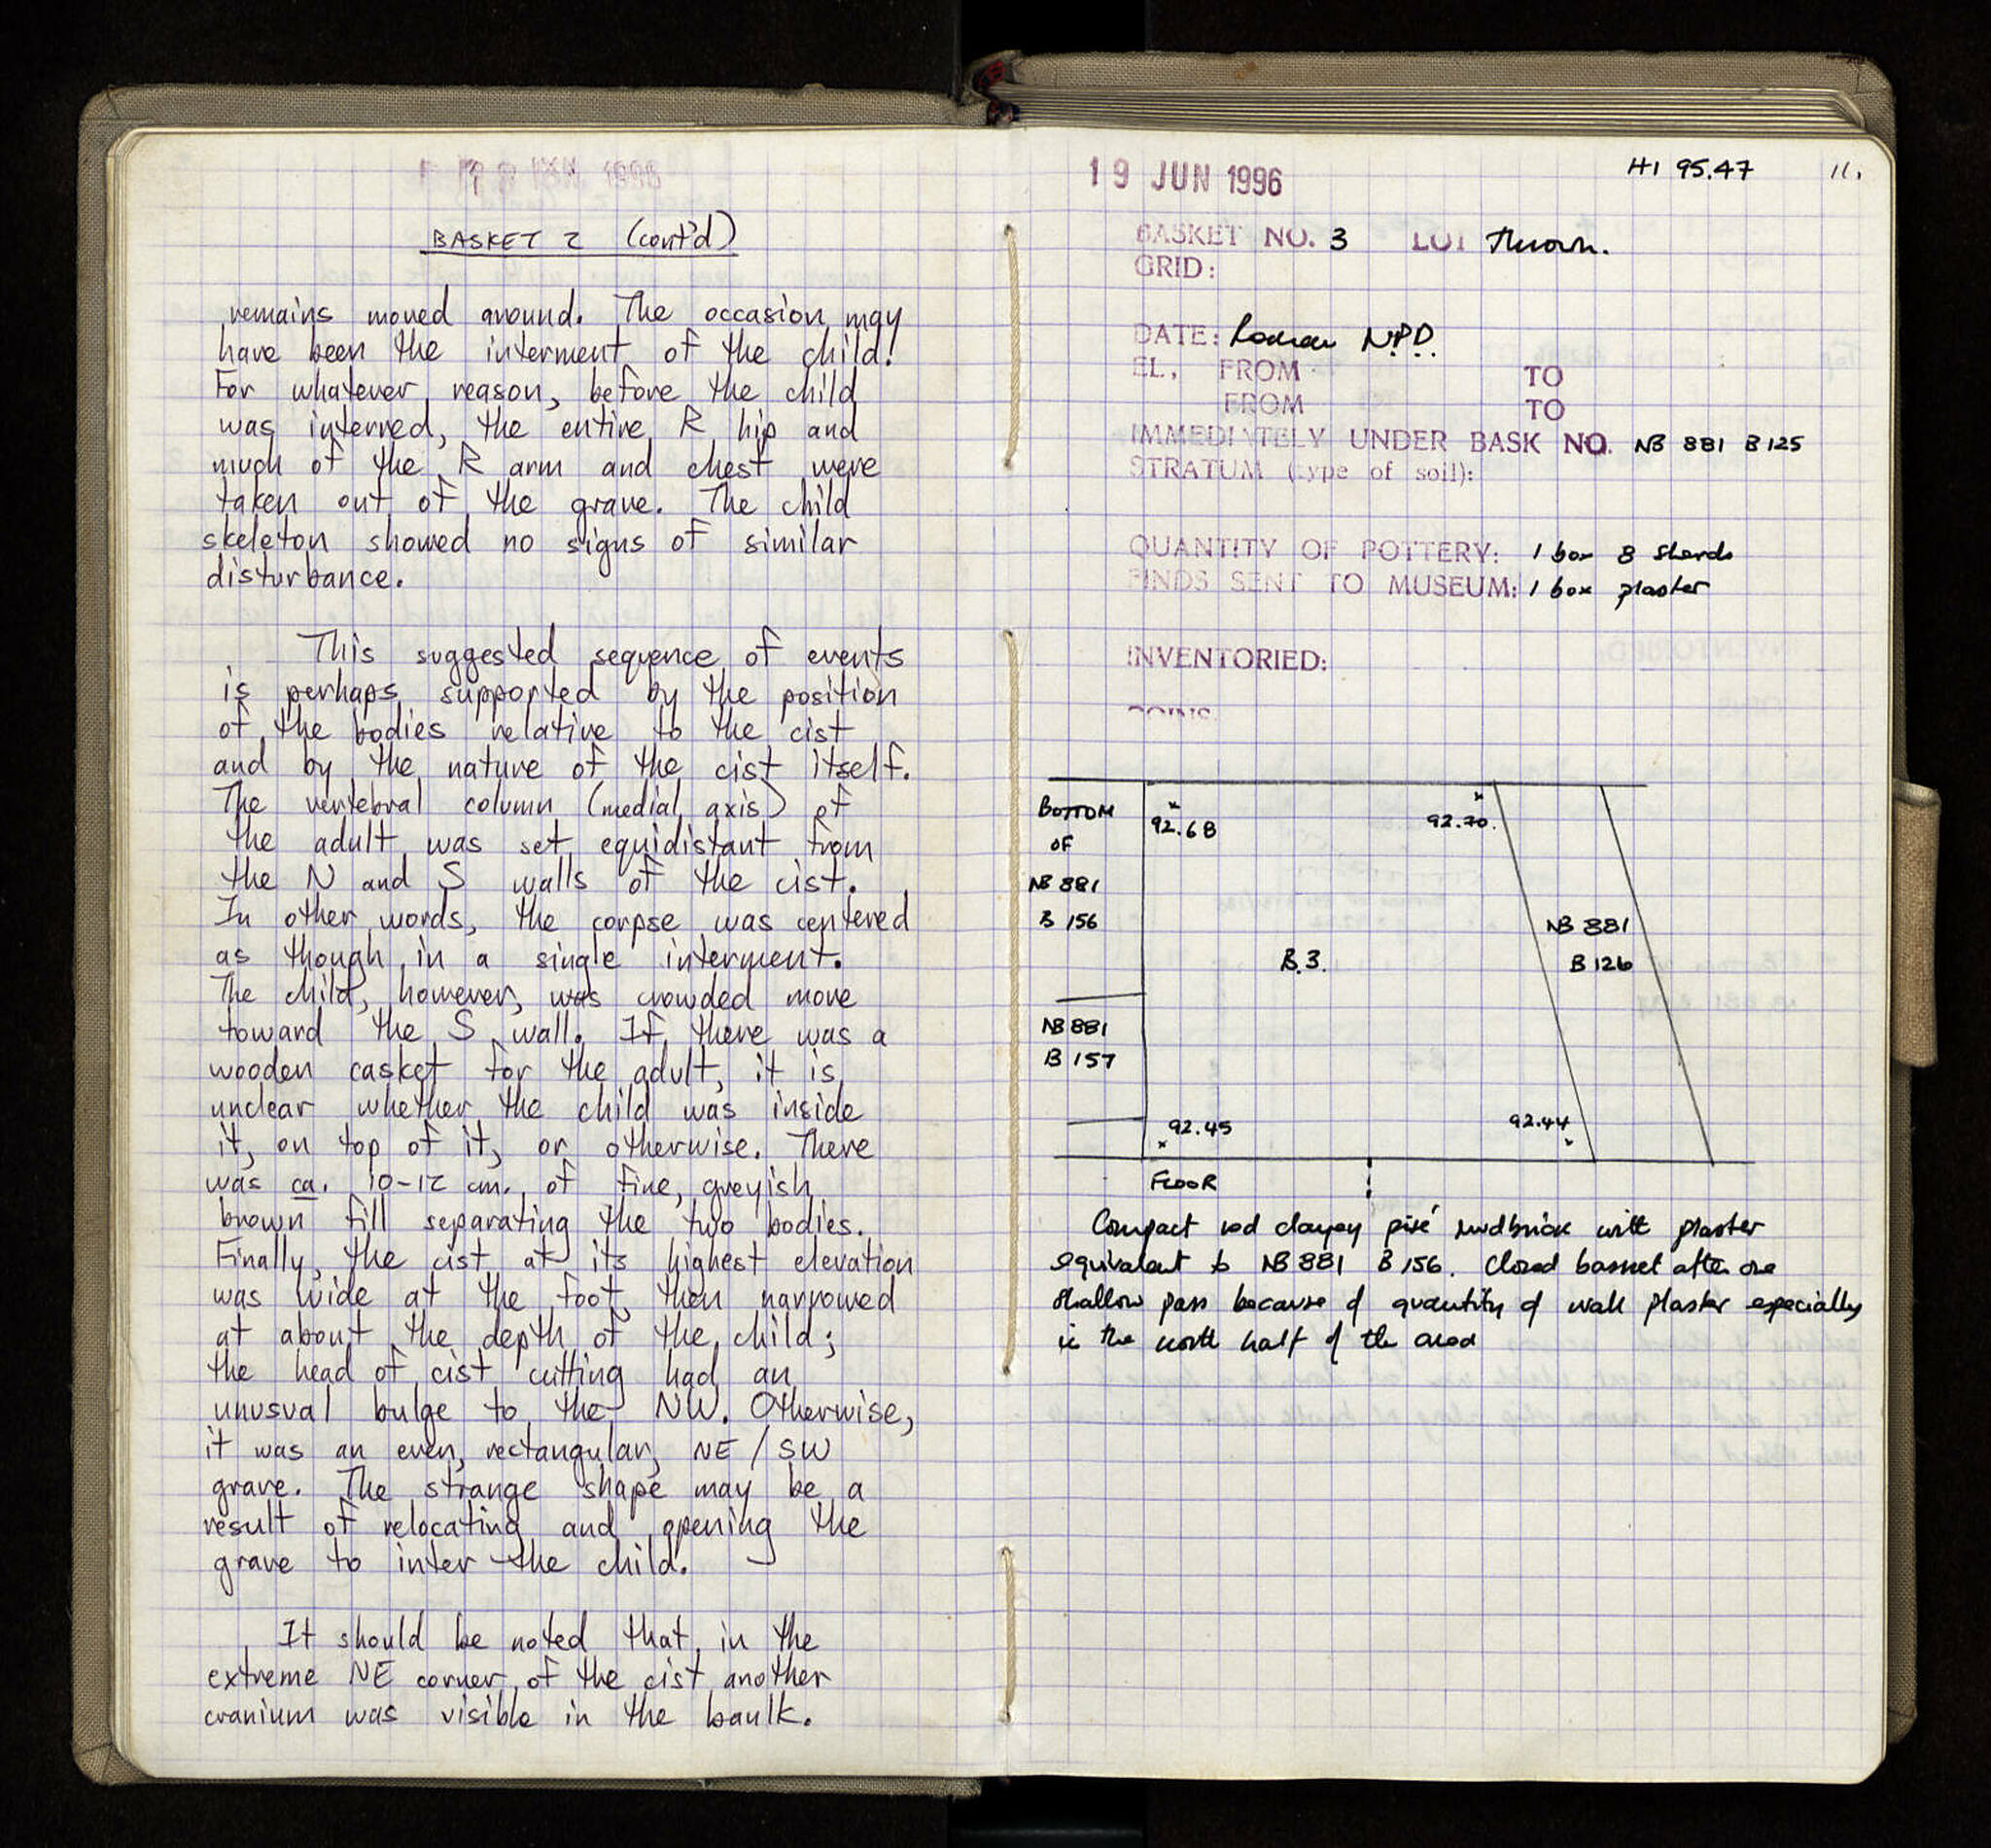 1996
BASKET 2 (cont'd)
remains moved around. The occasion may
have been the interment of the child.
For whatever reason, before the child
was interred, the entire R hip and
much of the R arm and chest were
taken out of the grave. The child
skeleton showed no signs of similar
disturbance.
This suggested sequence of events
is perhaps supported by the position
of the bodies relative to the cist
and by the nature of the cist itself.
The vertebral column (medial axis) of
the adult was set equidistant from
the N and S walls of the cist.
In other words, the corpse was centered
as though in a single interment.
The child, however, was crowded more
toward the S wall. If there was a
wooden casket for the adult, it is
unclear whether the child was inside
it, on top of it, or otherwise. There
was ca. 10-12 cm. of fine, greyish
brown fill separating the two bodies.
Finally, the cist at its highest elevation
was wide at the foot, then narrowed
at about the depth of the child;
the head of cist cutting had an
unusual bulge to the NW. Otherwise,
it was an even, rectangular, NE/SW
grave. The strange shape may be a
result of relocating and opening the
grave to inter the child.
It should be noted that in the
extreme NE corner of the cist another
cranium was visible in the baulk.
19 JUN 1996
HI 95.47 11.
BASKET NO. 3 LOT Thrown.
GRID:
DATE: N.P.D.
EL, FROM TO
FROM TO
IMMEDIATELY UNDER BASK NO. NB 881 B125
STRATUM (type of soil):
QUANTITY OF POTTERY: 1 box 8 sherds
FINDS SENT TO MUSEUM: 1 box plaster
INVENTORIED:
COINS:
BOTTOM
OF
NB 881
B 156
92.68
92.70.
B.3.
NB 881
B 126
NB 881
B 157
92.45
92.44
FLOOR
Compact red clayey pisé mudbrick with plaster
equivalent to NB 881 B 156. Closed basket after one
shallow pass because of quantity of wall plaster especially
in the north half of the area